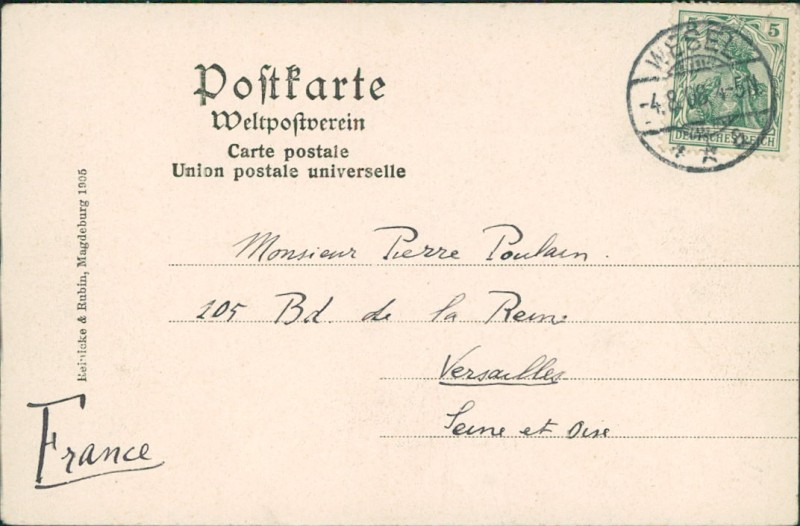 Postkarte
Weltpostverein
Carte postale
Union postale universelle
5 5
WESEL
4.8.06. 4-5N
DEUTSCHES REICH
Reinicke & Rubin, Magdeburg 1905
Monsieur Pierre Poulain.
105 Bd. de la Reine
Versailles
Seine et Oise
France